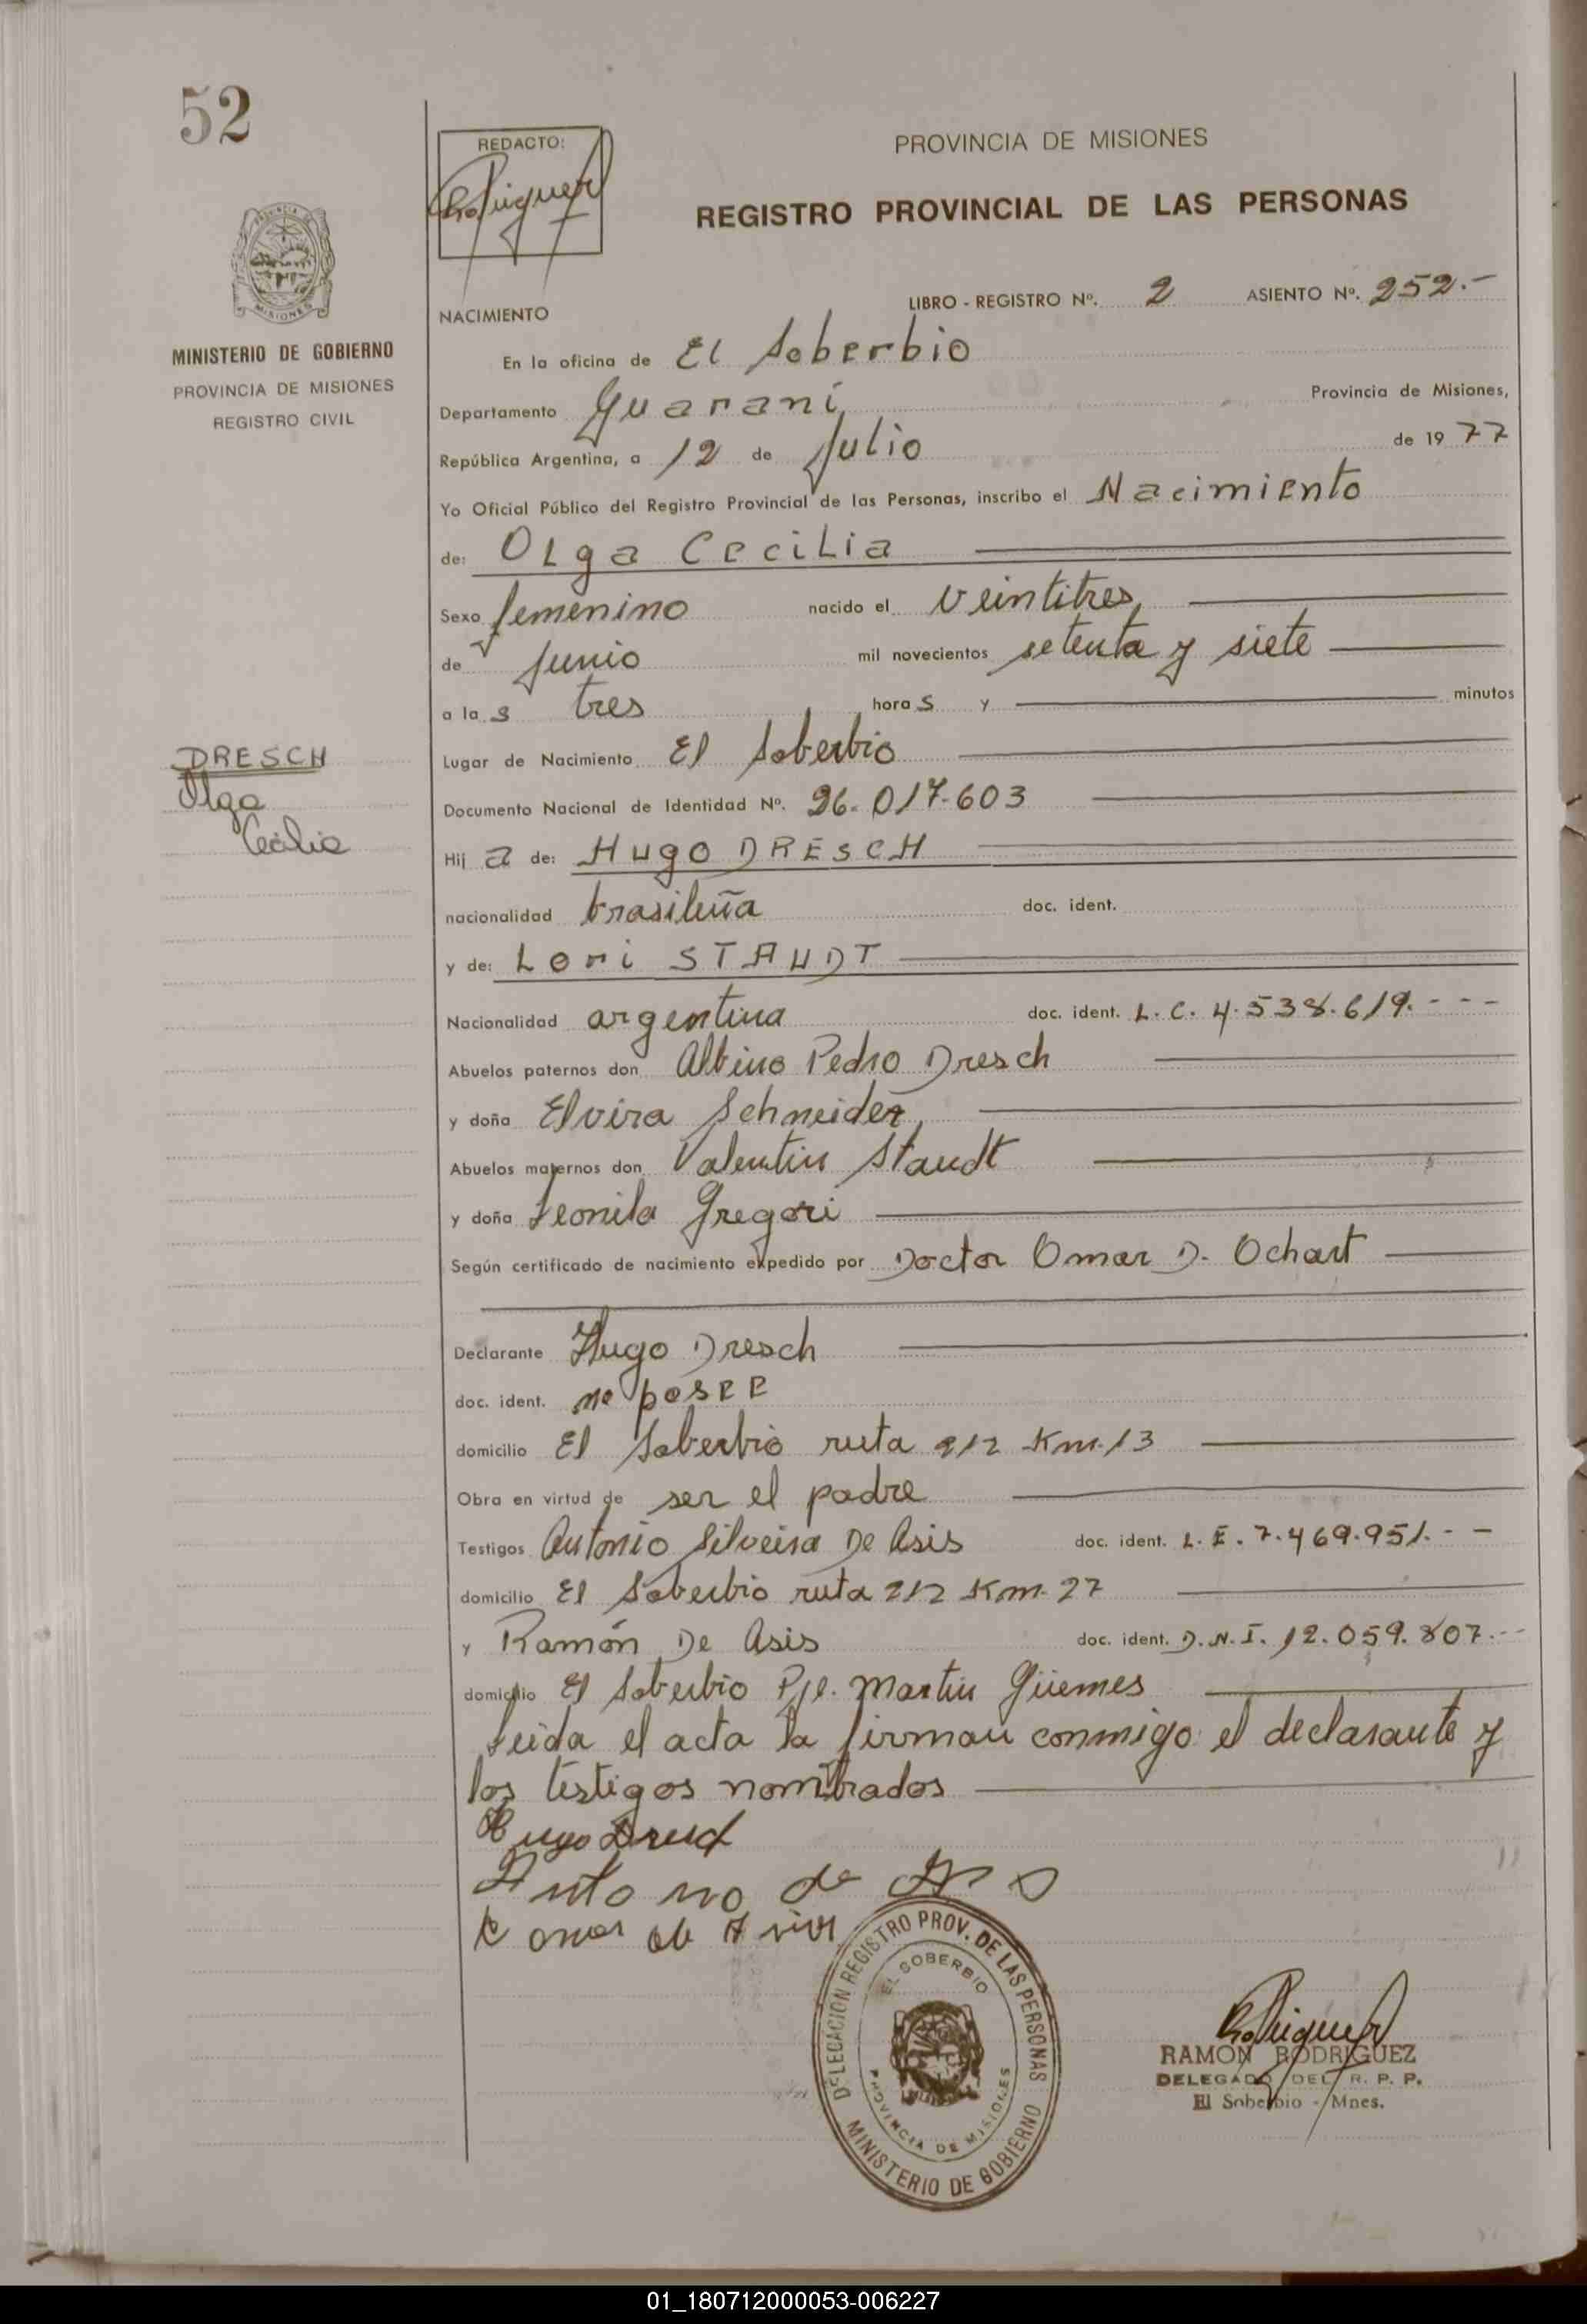 52
REDACTO:
PROVINCIA DE MISIONES
REGISTRO PROVINCIAL DE LAS PERSONAS
MISIONES
MINISTERIO DE GOBIERNO
PROVINCIA DE MISIONES
REGISTRO CIVIL
NACIMIENTO
LIBRO - REGISTRO Nº. 2 ASIENTO Nº. 252.-
En la oficina de El Soberbio
Departamento Guaraní Provincia de Misiones,
República Argentina, a 12 de Julio de 1977
Yo Oficial Público del Registro Provincial de las Personas, inscribo el Nacimiento
de: Olga Cecilia
Sexo femenino nacido el veintitres
de Junio mil novecientos setenta y siete
a la s tres hora s y minutos
Lugar de Nacimiento El Soberbio
DRESCH
Olga
Cecilia
Documento Nacional de Identidad Nº. 26.017.603
Hij a de: Hugo DRESCH
nacionalidad brasileña doc. ident.
y de: Lori STAUDT
Nacionalidad argentina doc. ident. L.C. 4.538.619.---
Abuelos paternos don Albino Pedro Dresch
y doña Elvira Schneider
Abuelos maternos don Valentin Staudt
y doña Leonila Gregori
Según certificado de nacimiento expedido por Doctor Omar D. Ochart
Declarante Hugo Dresch
doc. ident. no posee
domicilio El Soberbio ruta 212 Km. 13
Obra en virtud de ser el padre
Testigos Antonio Silveira De Asis doc. ident. L.E. 7.469.951.--
domicilio El Soberbio ruta 212 Km. 27
y Ramón De Asis doc. ident. D.N.I. 12.059.807.--
domicilio El Soberbio Pje. Martin Güemes
Leida el acta la firman conmigo el declarante y
los testigos nombrados
DELEGACION REGISTRO PROV. DE LAS PERSONAS
EL SOBERBIO
PROVINCIA DE MISIONES
MINISTERIO DE GOBIERNO
RAMON RODRIGUEZ
DELEGADO DEL R. P. P.
El Soberbio - Mnes.
01_180712000053-006227